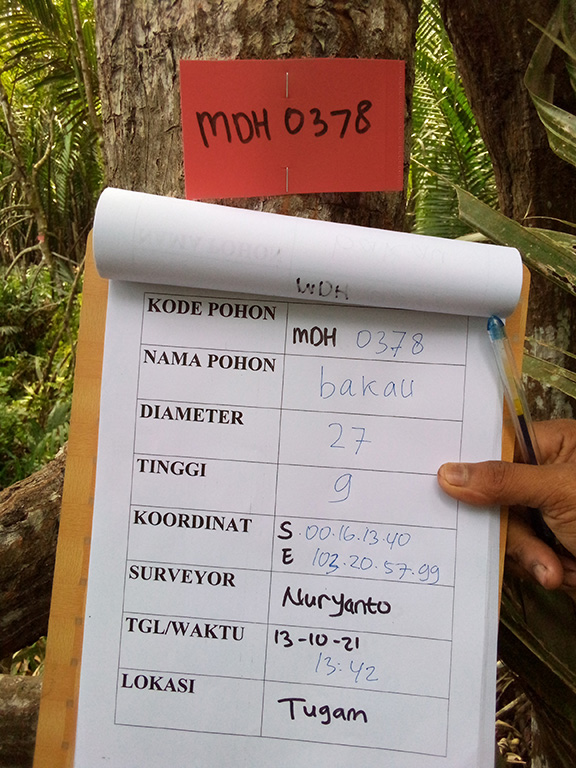 MDH 0378
MDH
KODE POHON
MDH 0378
NAMA POHON
bakau
DIAMETER
27
TINGGI
9
KOORDINAT
S .00.16.13.40
E 103.20.57.99
SURVEYOR
Nuryanto
TGL/WAKTU
13-10-21
13:42
LOKASI
Tugam